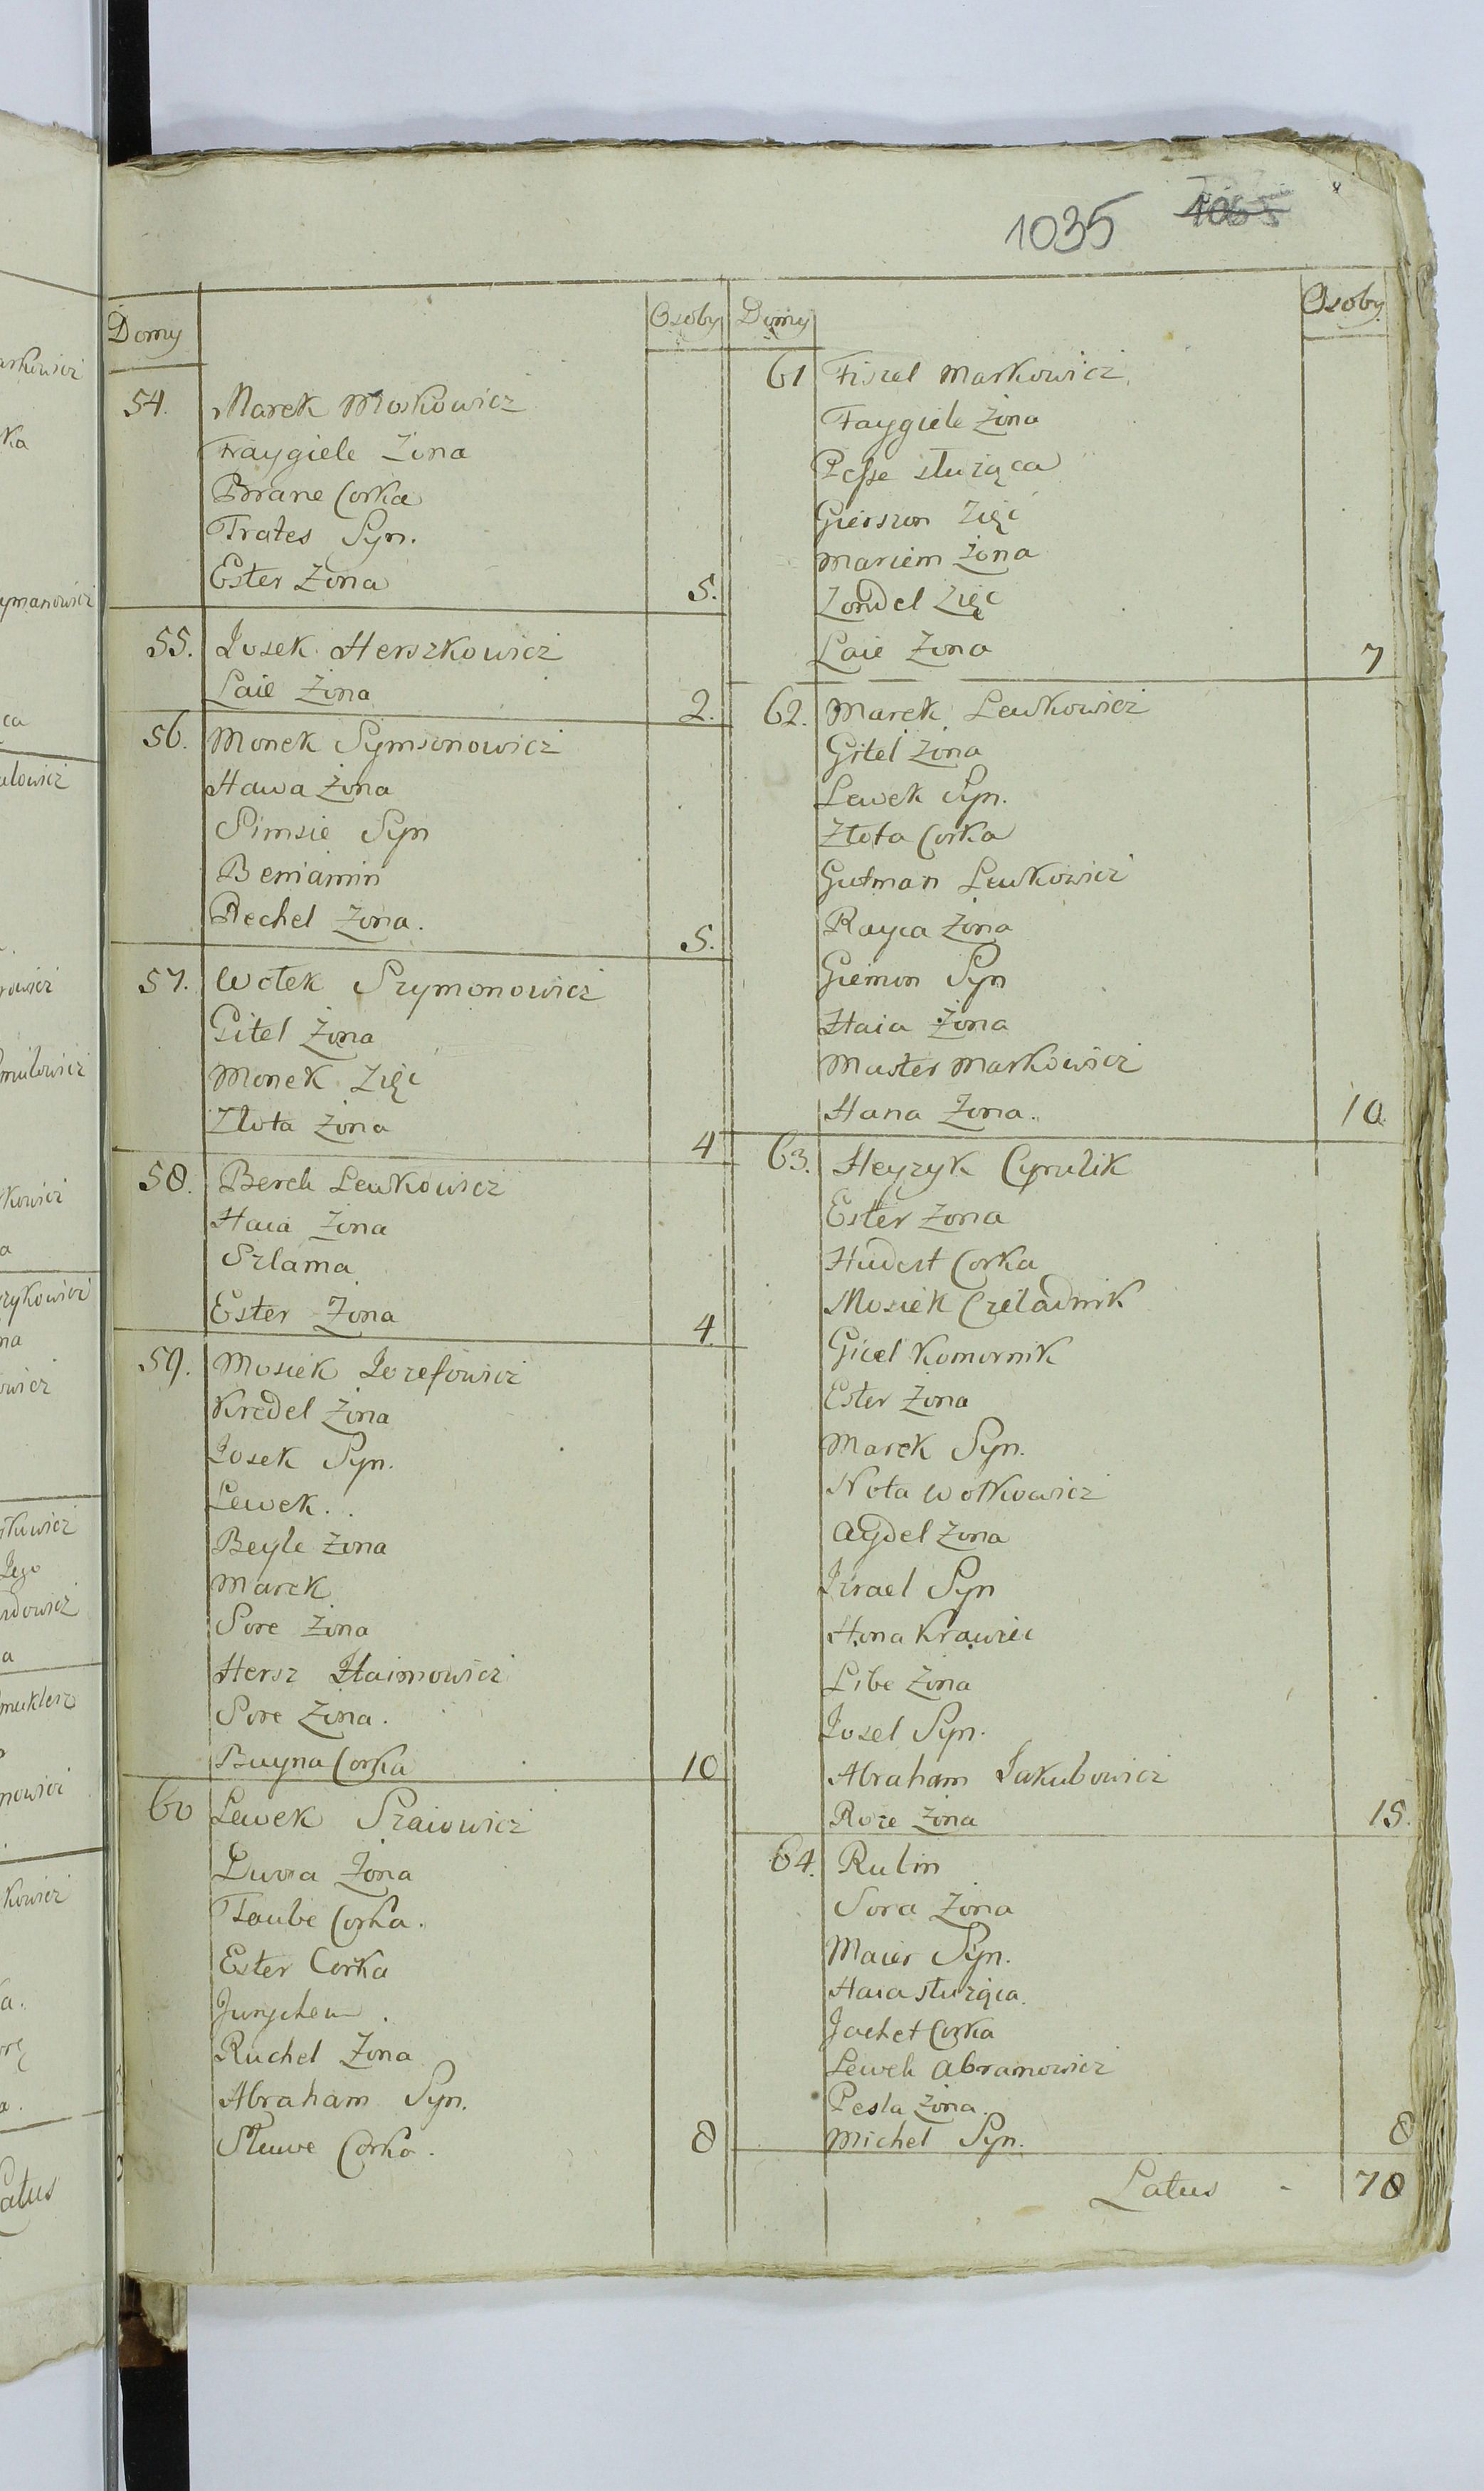 1035 1065
Domy Osoby
54. Marek Moskowicz
Fraygiele Żona
Brane Corka
Trates Syn.
Ester Żona 5.
55. Josek Herszkowicz
Laie Żona 2.
56. Monek Symsonowicz
Hawa Żona
Simsie Syn
Beniamin
Rechel Żona. 5.
57. Wolek Szymonowicz
Gitel Żona
Monek Zięć
Złota Żona 4
58. Berek Lewkowicz
Haia Żona
Szlama
Ester Żona 4.
59. Mosiek Jozefowicz
Kredel Żona
Josek Syn.
Lewek.
Beyle Żona
Marek
Sore Żona
Hersz Haimowicz
Sore Żona.
Buyna Corka 10
60 Lewek Szaiowicz
Dwora Żona
Taube Corka.
Ester Corka
Ruchel Żona
Abraham Syn.
Sluwe Corka. 8
Domy Osoby
61 Fiszel Markowicz
Faygiele Żona
Pesse służąca
Gierszon Zięć
Mariem Żona
Zondel Zięć
Laie Żona 7
62. Marek Lewkowicz
Gitel Żona
Lewek Syn.
Złota Corka
Gutman Lewkowicz
Rayca Żona
Giemon Syn
Haia Żona
Markowicz
Hana Żona. 10
63. Heyzyk Cyrulik
Ester Żona
Hudest Corka
Mosiek Czeladnik
Gicel Komornik
Ester Żona
Marek Syn.
Nota Wolkowicz
Aydel Żona
Izrael Syn
Hona Krawiec
Libe Żona
Josel Syn.
Abraham Jakubowicz
Roze Żona 15.
64. Rulin
Sora Żona
Maier Syn.
Haia służąca.
Jachet Corka
Lewek Abramowicz
Pesla Żona.
Michel Syn. 8
Latus - 78